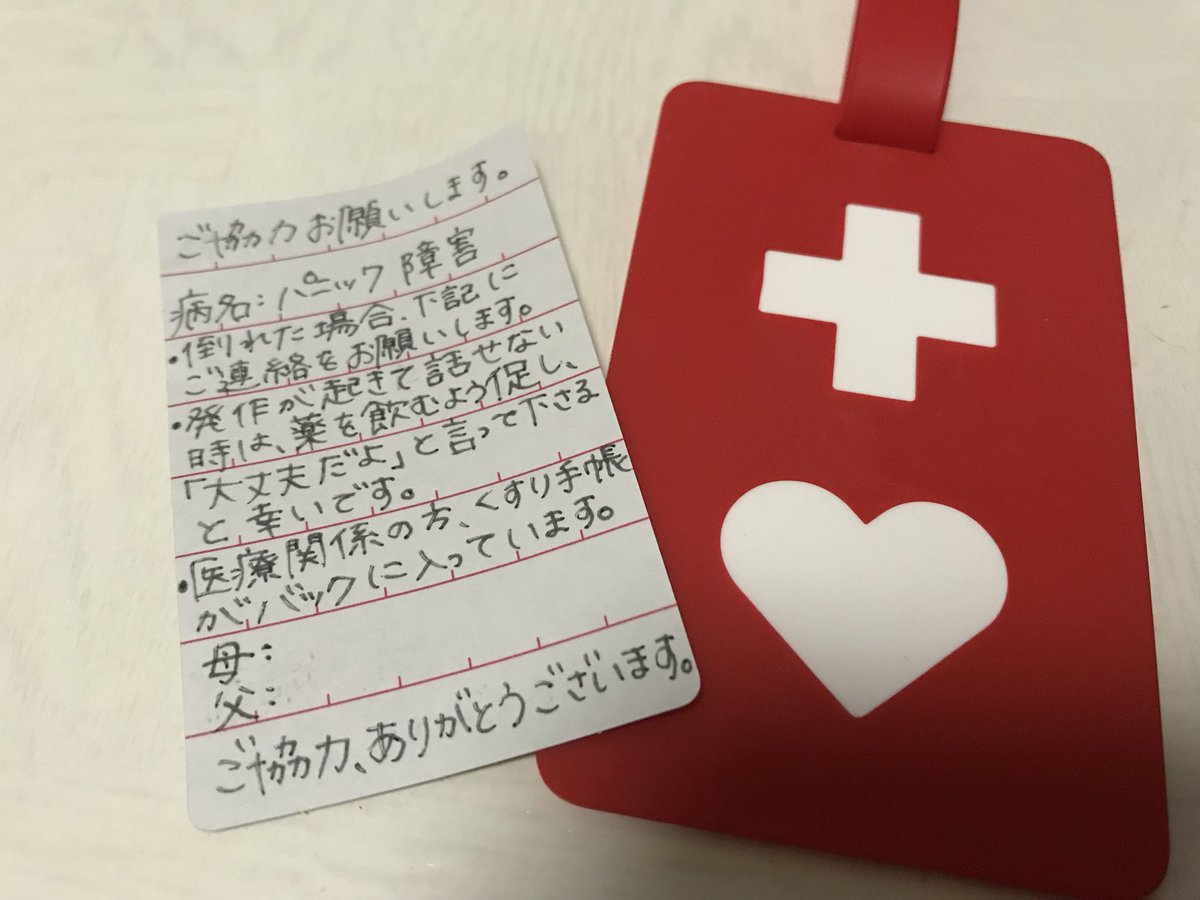 ご協力お願いします。
病名:パニック障害
・倒れた場合、下記に
ご連絡をお願いします。
・発作が起きて話せない
時は、薬を飲むよう促し、
「大丈夫だよ」と言って下さる
と幸いです。
・医療関係の方、くすり手帳
がバックに入っています。
母:
父:
ご協力、ありがとうございます。